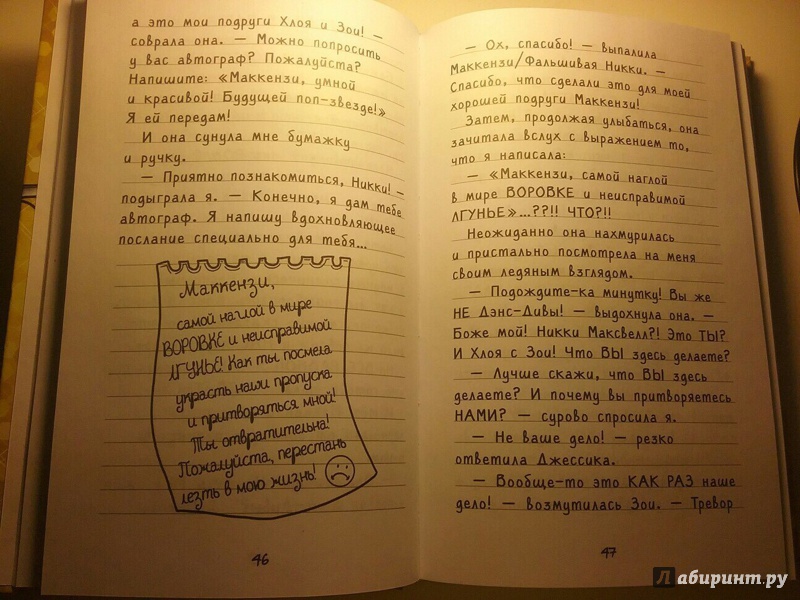 а это мои подруги Хлоя и Зои! —
соврала она. — Можно попросить
у вас автограф? Пожалуйста?
Напишите: «Маккензи, умной
и красивой! Будущей поп-звезде!»
Я ей передам!
И она сунула мне бумажку
и ручку.
— Приятно познакомиться, Никки! —
подыграла я. — Конечно, я дам тебе
автограф. Я напишу вдохновляющее
послание специально для тебя...
Маккензи,
самой наглой в мире
ВОРОВКЕ и неисправимой
ЛГУНЬЕ! Как ты посмела
украсть наши пропуска
и притворяться мной!
Ты отвратительна!
Пожалуйста, перестань
лезть в мою жизнь!
46
— Ох, спасибо! — выпалила
Маккензи/Фальшивая Никки. —
Спасибо, что сделали это для моей
хорошей подруги Маккензи!
Затем, продолжая улыбаться, она
зачитала вслух с выражением то,
что я написала:
— «Маккензи, самой наглой
в мире ВОРОВКЕ и неисправимой
ЛГУНЬЕ»...??!! ЧТО?!!
Неожиданно она нахмурилась
и пристально посмотрела на меня
своим ледяным взглядом.
— Подождите-ка минутку! Вы же
НЕ Дэнс-Дивы! — выдохнула она. —
Боже мой! Никки Максвелл?! Это ТЫ?
И Хлоя с Зои! Что ВЫ здесь делаете?
— Лучше скажи, что ВЫ здесь
делаете? И почему вы притворяетесь
НАМИ? — сурово спросила я.
— Не ваше дело! — резко
ответила Джессика.
— Вообще-то это КАК РАЗ наше
дело! — возмутилась Зои. — Тревор
47
Лабиринт.ру